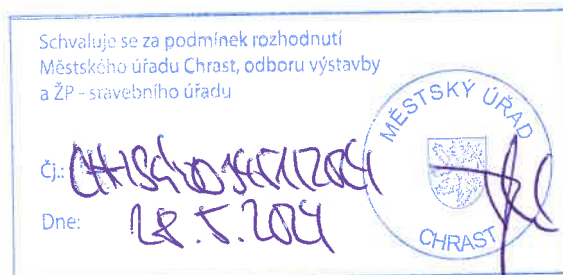 Schvaluje se za podmínek rozhodnutí
Městského úřadu Chrast, odboru výstavby
a ŽP - stavebního úřadu
Čj.:
Dne: 28.5.2021
MĚSTSKÝ ÚŘAD
CHRAST